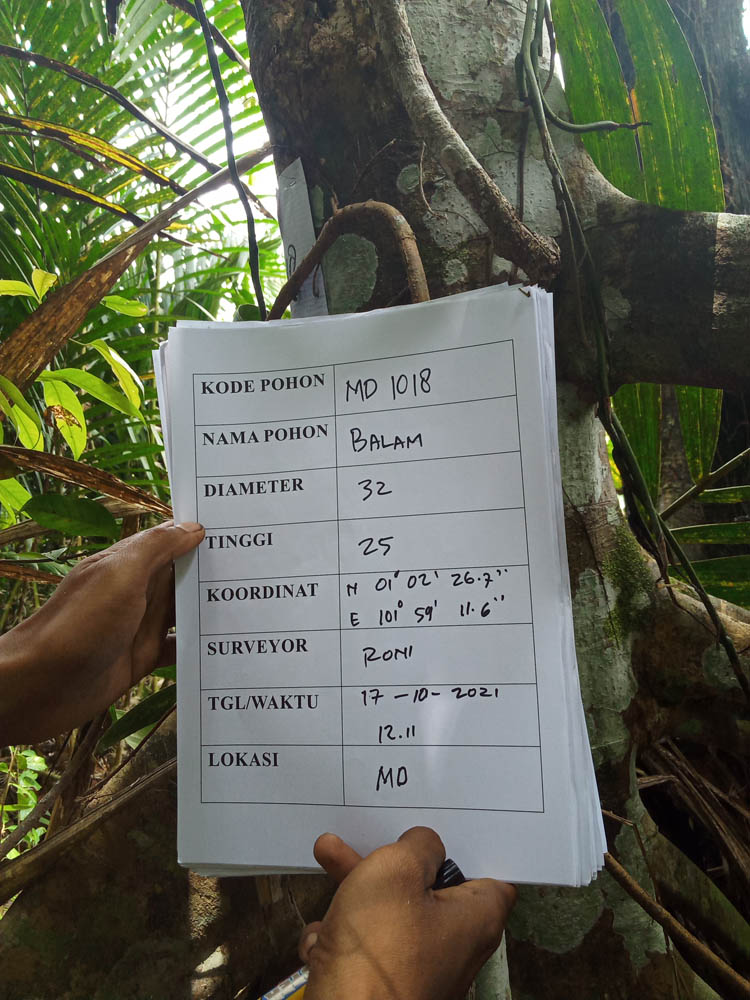 KODE POHON MD 1018
NAMA POHON BALAM
DIAMETER 32
TINGGI 25
KOORDINAT N 01° 02' 26.7"
E 101° 59' 11.6"
SURVEYOR RONI
TGL/WAKTU 17-10-2021
12.11
LOKASI MD